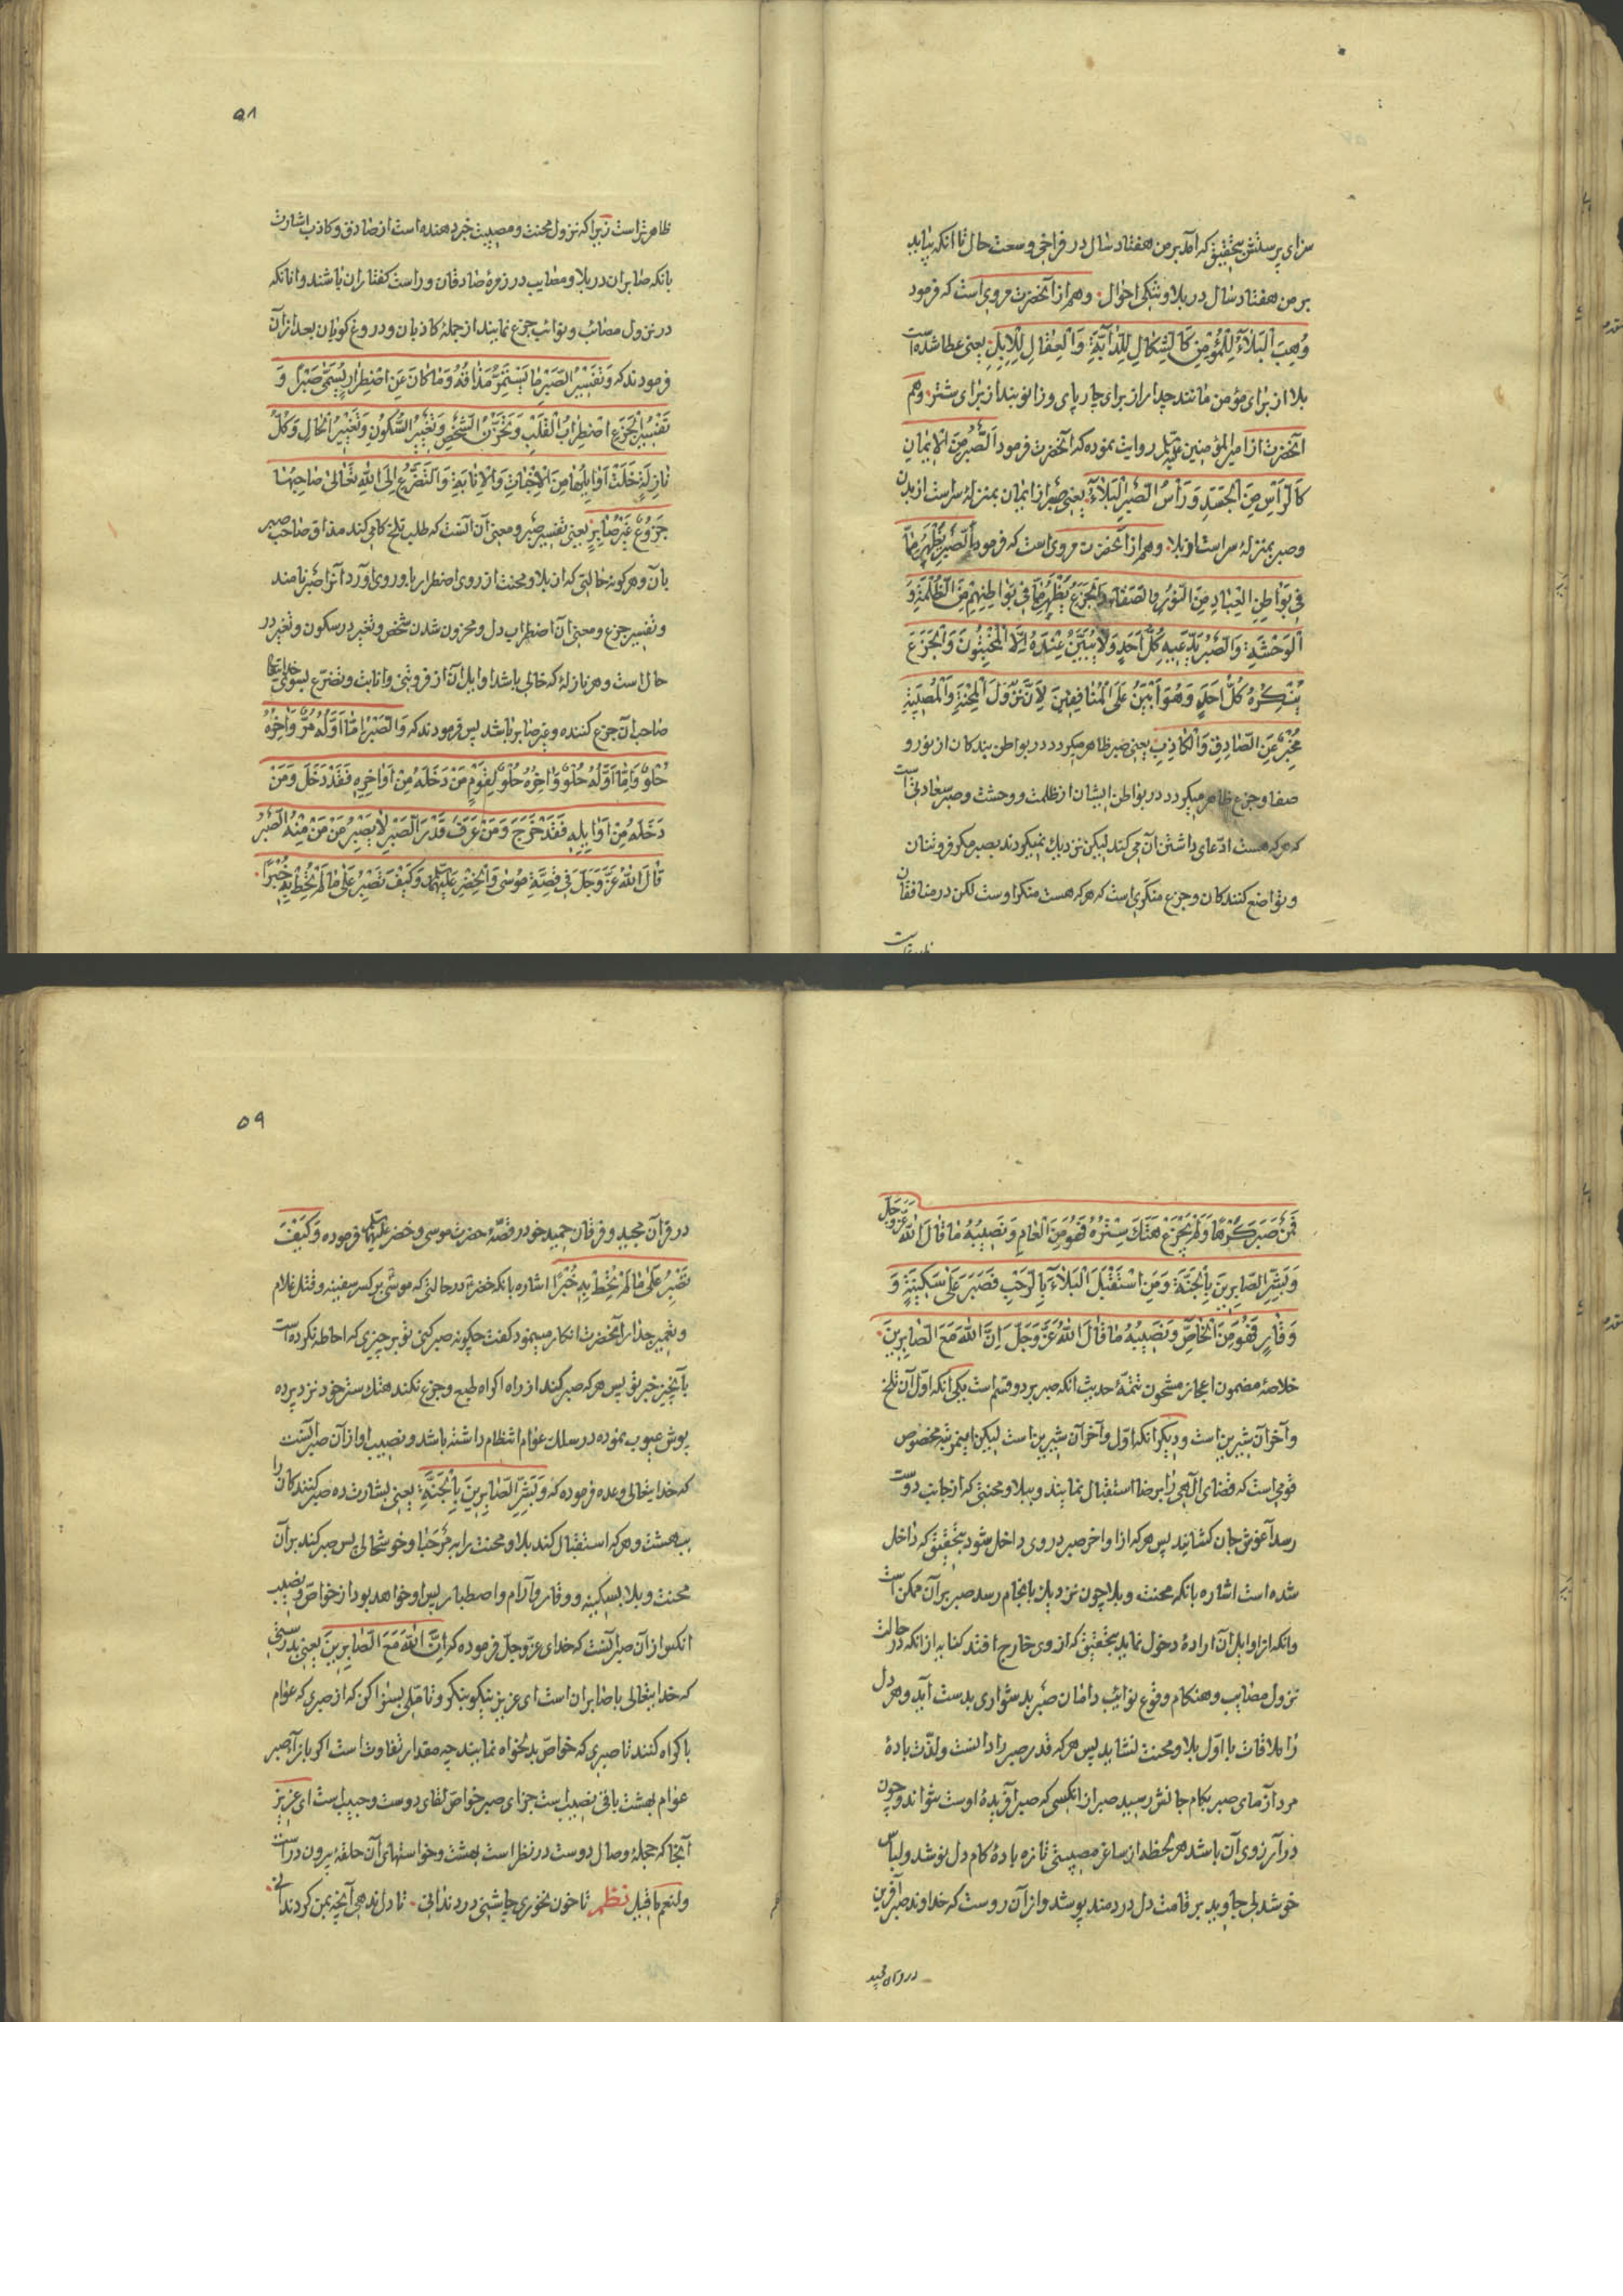 سزای پرستش بتحقیق که آمد بر من هفتاد سال در فراخی و وسعت حال تا آنکه بیاید
بر من هفتاد سال در بلا و تنکی احوال وهم از آنحضرت مرویست که فرمود
وُهِبَ الْبَلَاءُ لِلْمُؤْمِنِ کَالشِّکَالِ لِلدَّابَّةِ وَالْعِقَالِ لِلْاِبِلِ یعنی عطا شده است
بلا از برای مؤمن مانند چدار از برای چارپای و زانوبند از برای شتر وهم
آنحضرت از امیر المؤمنین علیه‌السلم روایت نموده که آنحضرت فرمود اَلصَّبْرُ مِنَ الْاِیمَانِ
کَالرَّأْسِ مِنَ الْجَسَدِ وَرَأْسُ الصَّبْرِ الْبَلَاءُ یعنی صبر از ایمان بمنزلهٔ سر است از بدن
وصبر بمنزلهٔ سر است از بلا وهم از آنحضرت مرویست که فرمود اَلصَّبْرُ یُظْهِرُ مَا
فِی بَوَاطِنِ الْعِبَادِ مِنَ النُّورِ وَالصَّفَاءِ وَالْجَزَعُ یُظْهِرُ مَا فِی بَوَاطِنِهِمْ مِنَ الظُّلْمَةِ وَ
الْوَحْشَةِ وَالصَّبْرُ یَدَّعِیهِ کُلُّ اَحَدٍ وَلَا یُبَیَّنُ عِنْدَهُ اِلَّا الْمُخْبِتُونَ وَالْجَزَعُ
یُنْکِرُهُ کُلُّ اَحَدٍ وَهُوَ اَبْیَنُ عَلَی الْمُنَافِقِینَ لِاَنَّ نُزُولَ الْمِحْنَةِ وَالْمُصِیبَةِ
مُخْبِرٌ عَنِ الصَّادِقِ وَالْکَاذِبِ یعنی صبر ظاهر میکردد در بواطن بندکان از نور و
صفا و جزع ظاهر میکردد در بواطن ایشان از ظلمت و وحشت و صبر سعادتی است
که هرکه هست ادّعای داشتن آن می کند لیکن نزدیک نمیکردند بصبر مکر فروتنان
وتواضع کنندکان و جزع منکری است که هرکه هست منکر اوست لکن در منافقان
۵۸
ظاهرتر است زیرا که نزول محنت و مصیبت خبر دهنده است از صادق و کاذب اشارت
بانکه صابران در بلا و مصایب در زمرهٔ صادقان و راست کفتاران باشند و آنانکه
در نزول مصائب و نوائب جزع نمایند از جملهٔ کاذبان و دروغ کویان بعد از آن
فرمودند که وَتَفْسِیرُ الصَّبْرِ مَا یَسْتَمِرُّ مَذَاقُهُ وَمَا کَانَ عَنِ اضْطِرَارٍ یُسَمَّی صَبْرًا وَ
تَفْسِیرُ الْجَزَعِ اضْطِرَابُ الْقَلْبِ وَتَحَزُّنُ الشَّخْصِ وَتَغْیِیرُ السُّکُونِ وَتَغْیِیرُ الْحَالِ وَکُلُّ
نَازِلَةٍ خَلَتْ اَوَایِلُهَا مِنَ الْاِخْبَاتِ وَالْاِنَابَةِ وَالتَّضَرُّعِ اِلَی اللهِ تَعَالَی صَاحِبُهَا
جَزُوعٌ غَیْرُ صَابِرٍ یعنی تفسیر صبر و معنی آن آنست که طلب تلخ کامی کند مذاق صاحب صبر
بآن و هرکونه حالتی که آن بلا و محنت از روی اضطرار با و روی آورد آنرا صبر نامند
وتفسیر جزع و معنی آن اضطراب دل و محزون شدن شخص و تغیر در سکون و تغیر در
حال است و هر نازلهٔ که خالی باشد اوایل آن از فروتنی و انابت و تضرّع بسوی خدایتعالی
صاحب آن جزع کننده و غیر صابر باشد پس فرمودند که وَالصَّبْرُ مَا اَوَّلُهُ مُرٌّ وَاٰخِرُهُ
حُلْوٌ وَاِمَّا اَوَّلُهُ حُلْوٌ وَاٰخِرُهُ حُلْوٌ لِقَوْمٍ مَنْ دَخَلَهُ مِنْ اَوَاخِرِهِ فَقَدْ دَخَلَ وَمَنْ
دَخَلَهُ مِنْ اَوَایِلِهِ فَقَدْ خَرَجَ وَمَنْ عَرَفَ قَدْرَ الصَّبْرِ لَا یَصْبِرُ عَنْ مَنْ مِنْهُ الصَّبْرُ
قَالَ اللهُ عَزَّ وَجَلَّ فِی قِصَّةِ مُوسٰی وَالْخِضْرِ عَلَیْهِمَا وَکَیْفَ تَصْبِرُ عَلٰی مَا لَمْ تُحِطْ بِهِ خُبْرًا
فَمَنْ صَبَرَ کُرْهًا وَلَمْ یَجْزَعْ هَتَکَ سِتْرُهُ فَهُوَ مِنَ الْعَامِ وَنَصِیبُهُ مَا قَالَ اللهُ عَزَّ وَجَلَّ
وَبَشِّرِ الصَّابِرِینَ بِالْجَنَّةِ وَمَنِ اسْتَقْبَلَ الْبَلَاءَ بِالرَّحْبِ فَصَبَرَ عَلٰی سَکِینَةٍ وَ
وَقَارٍ فَهُوَ مِنَ الْخَاصِّ وَنَصِیبُهُ مَا قَالَ اللهُ عَزَّ وَجَلَّ اِنَّ اللهَ مَعَ الصَّابِرِینَ
خلاصهٔ مضمون اعجاز مشحون تتمهٔ حدیث آنکه صبر بر دو قسم است یکی آنکه اوّل آن تلخ
وآخر آن شیرین است و دیکر آنکه اوّل و آخر آن شیرین است لیکن اینمرتبه مخصوص
قومی است که قضای الٓهی را برضا استقبال نمایند و ببلا و محنتی که از جانب دوست
رسد آغوش جان کشانید پس هرکه از اواخر صبر در وی داخل شود بتحقیق که داخل
شده است اشاره بانکه محنت و بلا چون نزدیک بانجام رسد صبر بر آن ممکن است
وانکه از اوایل آن ارادهٔ دخول نماید بتحقیق که از وی خارج افتد کنایه از آنکه در حالت
نزول مصایب و هنکام وقوع نوایب دامان صبر بدشواری بدست آید و هر دل
را ملاقات با اوّل بلا و محنت نشاید پس هرکه قدر صبر را دانست و لذّت بادهٔ
مرد آزمای صبر بکام جانش رسید صبر از آنکسی که صبر آفریدهٔ اوست نتواند و چون
در آرزوی آن باشد هر لحظه از ساغر مصیبتی تازه بادهٔ کام دل نوشد و لباس
خوشدلی جاوید بر قامت دل دردمند پوشد و از آن روست که خداوند صبر آفرین
در قرآن مجید
۵۹
در قرآن مجید و فرقان حمید خود در قصّهٔ حضرت موسی و خضر علیهما السلم فرموده وَکَیْفَ
تَصْبِرُ عَلٰی مَا لَمْ تُحِطْ بِهِ خُبْرًا اشاره بانکه خضر در حالتی که موسی بر کسر سفینه و قتل غلام
وتعمیر جدار آنحضرت انکار مینمود کفت چکونه صبر کنی تو بر چیزی که احاطه نکرده است
بآنچیز خبر تو پس هرکه صبر کند از راه اکراه طبع و جزع نکند هتک ستر خود نزد پرده
پوش عیوب نموده در سلک عوام انتظام داشته باشد و نصیب او از آن صبر آنست
که خدایتعالی وعده فرموده که وَبَشِّرِ الصَّابِرِینَ بِالْجَنَّةِ یعنی بشارت ده صبر کنندکان را
ببهشت و هرکه استقبال کند بلا و محنت را به مَرْحَبا و خوشحالی پس صبر کند بر آن
محنت و بلا بسکینه و وقار و آرام و اصطبار پس او خواهد بود از خواص و نصیب
آنکس از آن صبر آنست که خدای عزّ وجلّ فرموده که اِنَّ اللهَ مَعَ الصَّابِرِینَ یعنی بدرستی
که خدایتعالی با صابران است ای عزیز نیکو بنکر و تأمّلی بسزا کن که از صبری که عوام
باکراه کنند تا صبری که خواص بدلخواه نمایند چه مقدار تفاوت است اکر بازاء صبر
عوام بهشت باقی نصیب است جزای صبر خواص لقای دوست و حبیب است ای عزیز
آنجا که حجلهٔ وصال دوست در نظر است بهشت و خواستهای آن حلقه بیرون در است
ولنعم ما قیل نظم تا خون نخوری چاشنی درد ندانی تا دل ندهی آنچه بمن کرد ندانی